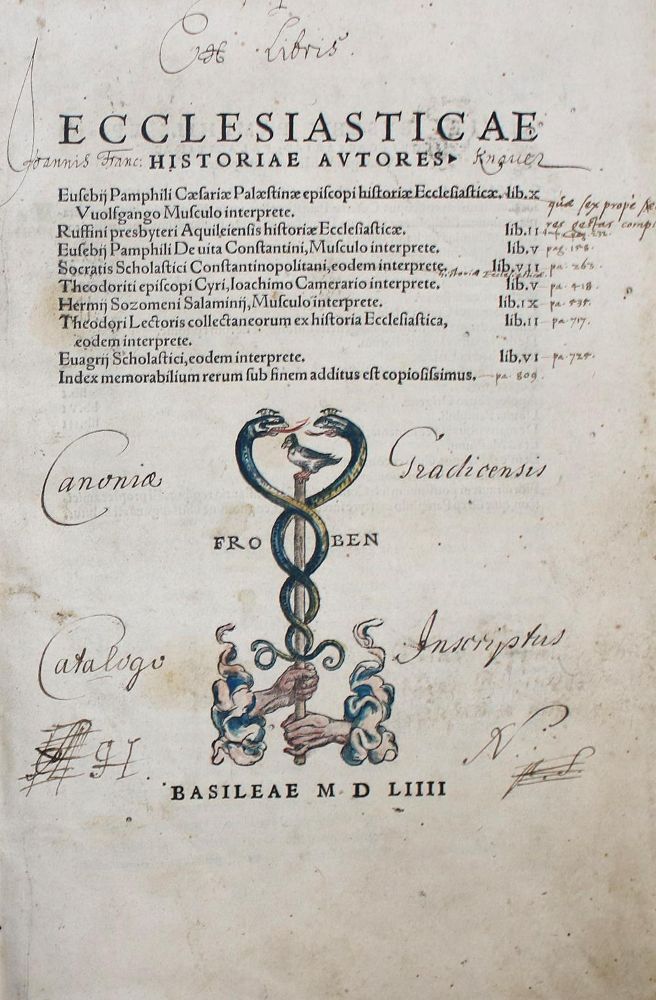 Ex Libris.
ECCLESIASTICAE
Joannis Franc: HISTORIAE AVTORES▸ Knauer
Eusebij Pamphili Cæsariæ Palæstinæ episcopi historiæ Ecclesiasticæ, lib.x
Vuolfgango Musculo interprete. quæ sex propè
Ruffini presbyteri Aquileiensis historiæ Ecclesiasticæ. lib.II res gestas
Eusebij Pamphili De uita Constantini, Musculo interprete. lib.v pag. 158.
Socratis Scholastici Constantinopolitani, eodem interprete. lib.vII pa. 263.
historia Ecclesiastica
Theodoriti episcopi Cyri, Ioachimo Camerario interprete. lib.v pa. 418.
Hermij Sozomeni Salaminij, Musculo interprete. lib.Ix pa.
Theodori Lectoris collectaneorum ex historia Ecclesiastica, lib.II pa. 717.
eodem interprete.
Euagrij Scholastici, eodem interprete. lib.vI pa. 724.
Index memorabilium rerum sub finem additus est copiosissimus. pa. 809.
Canoniæ Gradicensis
FRO BEN
Catalogo Inscriptus
N
BASILEAE M D LIIII